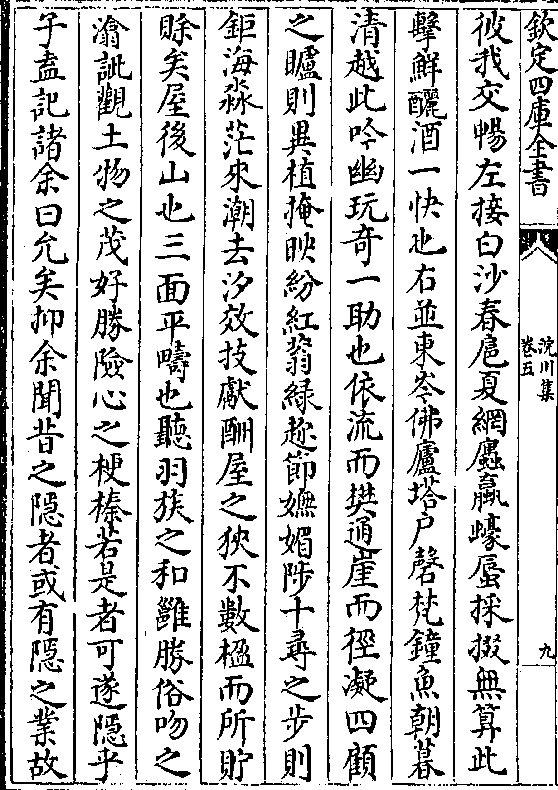 欽定四庫全書
浣川集
卷五
九
彼我交暢左接白沙春扈夏網䗪蠃蠔蜃採掇無算此
擊鮮釃酒一快也右並東岑佛廬塔戶磬梵鐘魚朝暮
清越此吟幽玩奇一助也依流而樊通崖而徑凝四顧
之矑則異植掩映紛紅蓊綠趁節嫵媚陟十尋之步則
鉅海淼茫來潮去汐效技獻酬屋之狹不數楹而所貯
賒矣屋後山也三面平疇也聽羽族之和雝勝俗吻之
瀹訿觀土物之茂好勝險心之梗榛若是者可遂隱乎
子盍記諸余曰允矣抑余聞昔之隱者或有隱之業故